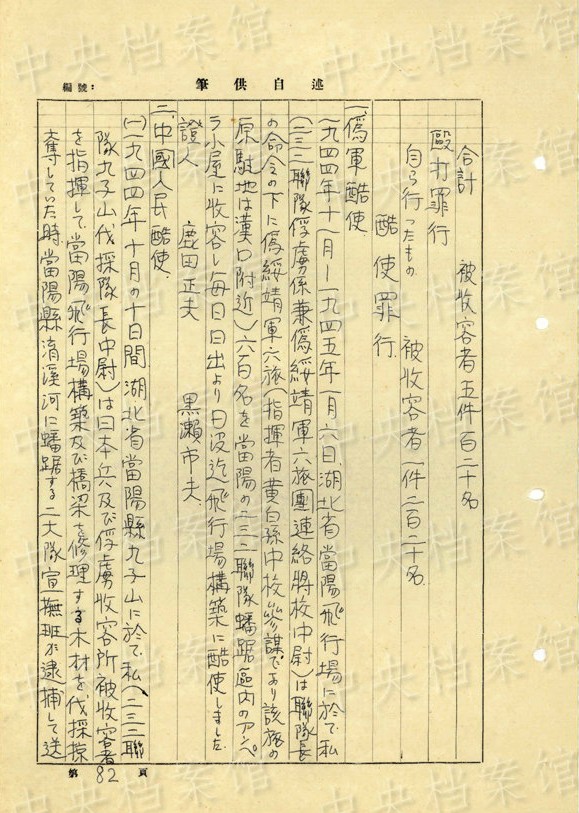 編號：
筆供自述
合計　被收容者五件百二十名
毆打罪行
自ら行ったもの　被收容者一件二百二十名
酷使罪行
一、偽軍酷使
一九四四年十一月―一九四五年一月六日、湖北省當陽飛行場に於て私
(二三二聯隊俘虜係兼偽綏靖軍六旅團連絡將校中尉)は聯隊長
の命令の下に偽綏靖軍六旅(指揮者黄白孫中校參謀であり該旅の
原駐地は漢口附近)六百名を當陽の二三二聯隊蟠踞區内のアンペ
ラ小屋に收容し毎日日出より日没迄飛行場構築に酷使しました
證人　鹿田正夫　黒瀬市夫
二、中國人民酷使
(一)一九四四年十月の十日間湖北省當陽縣九子山に於て私(二三二聯
隊九子山伐採隊長中尉)は日本兵及び俘虜收容所被收容者
を指揮して當陽飛行場構築及び橋梁を修理する木材を伐採掠
奪していた時當陽縣淯溪河に蟠踞する二大隊宣撫班が逮捕して送
第82頁
中央档案馆